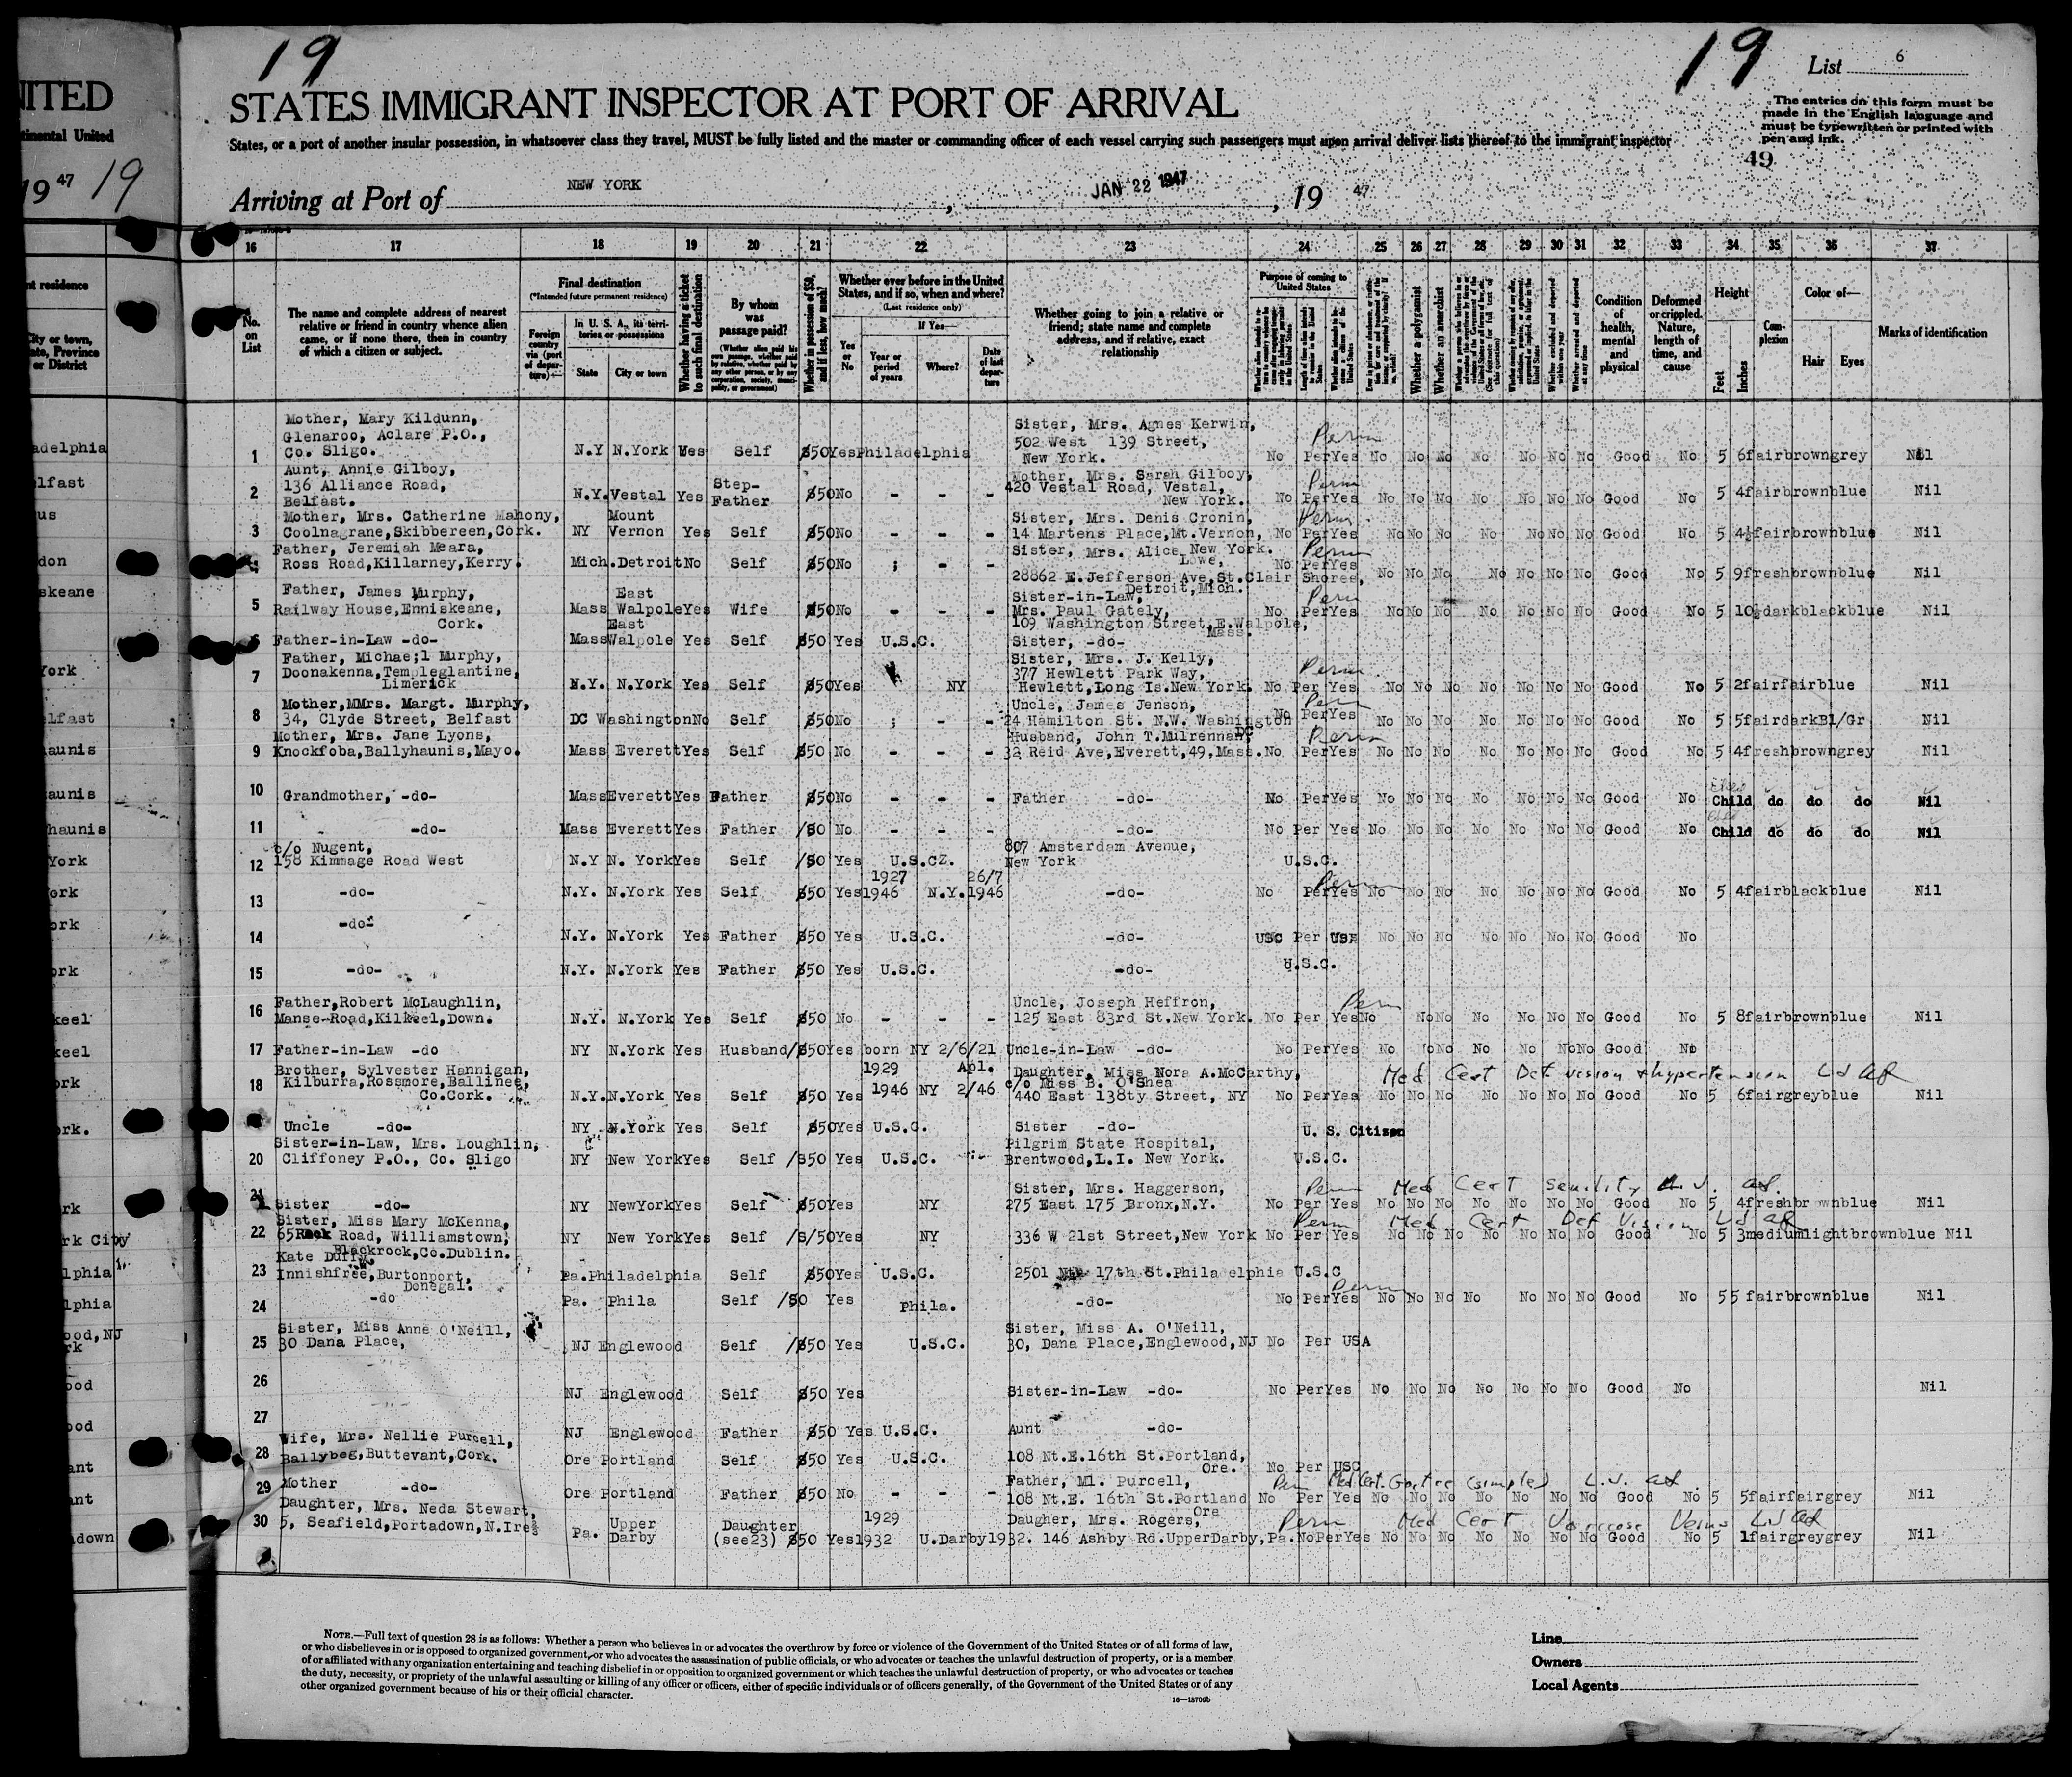 19
19
List 6
NITED
STATES IMMIGRANT INSPECTOR AT PORT OF ARRIVAL
The entries on this form must be
made in the English language and
must be typewritten or printed with
pen and ink.
tinental United
States, or a port of another insular possession, in whatsoever class they travel, MUST be fully listed and the master or commanding officer of each vessel carrying such passengers must upon arrival deliver lists thereof to the immigrant inspector
49
19 47 19
Arriving at Port of NEW YORK , JAN 22 1947 , 19 47
16 17 18 19 20 21 22 23 24 25 26 27 28 29 30 31 32 33 34 35 36 37
nt residence
City or town,
ate, Province
or District
No.
on
List
The name and complete address of nearest
relative or friend in country whence alien
came, or if none there, then in country
of which a citizen or subject.
Final destination
(*Intended future permanent residence)
Foreign
country
via (port
of depar-
ture)
In U. S. A., its terri-
tories or possessions
State
City or town
Whether having a ticket
to such final destination
By whom
was
passage paid?
(Whether alien paid his
own passage, whether paid
by relative, whether paid by
any other person, or by any
corporation, society, munici-
pality, or government)
Whether in possession of $50,
and if less, how much?
Whether ever before in the United
States, and if so, when and where?
(Last residence only)
Yes
or
No
If Yes—
Year or
period
of years
Where?
Date
of last
depar-
ture
Whether going to join a relative or
friend; state name and complete
address, and if relative, exact
relationship
Purpose of coming to
United States
Whether a polygamist
Whether an anarchist
Condition
of
health,
mental
and
physical
Deformed
or crippled.
Nature,
length of
time, and
cause
Height
Feet
Inches
Com-
plexion
Color of—
Hair
Eyes
Marks of identification
Mother, Mary Kildunn,
Glenaroo, Aclare P.O.,
Co. Sligo.
adelphia
1 N.Y N.York Yes Self $50 Yes Philadelphia
Sister, Mrs. Agnes Kerwin,
502 West 139 Street,
New York.
Perm
No Per Yes No No No No No No No Good No 5 6 fair brown grey Nil
Aunt, Annie Gilboy,
136 Alliance Road,
Belfast.
lfast
2 N.Y. Vestal Yes Step-
Father $50 No - - -
Mother, Mrs. Sarah Gilboy,
420 Vestal Road, Vestal,
New York.
Perm
No Per Yes No No No No No No No Good No 5 4 fair brown blue Nil
us
Mother, Mrs. Catherine Mahony,
3 Coolnagrane, Skibbereen, Cork. NY Mount
Vernon Yes Self $50 No - - -
Sister, Mrs. Denis Cronin,
14 Martens Place, Mt. Vernon,
New York.
Perm
No Per Yes No No No No No No No Good No 5 4½ fair brown blue Nil
don
Father, Jeremiah Meara,
Ross Road, Killarney, Kerry. Mich. Detroit No Self $50 No ; - -
Sister, Mrs. Alice Lowe,
28862 E. Jefferson Ave, St. Clair Shores,
Detroit, Mich.
Perm
No Per Yes No No No No No No No Good No 5 9 fresh brown blue Nil
skeane
Father, James Murphy,
5 Railway House, Enniskeane,
Cork.
Mass East
Walpole Yes Wife $50 No - - -
Sister-in-Law,
Mrs. Paul Gately,
109 Washington Street, E. Walpole,
Mass.
Perm
No Per Yes No No No No No No No Good No 5 10½ dark black blue Nil
6 Father-in-Law -do- Mass East
Walpole Yes Self $50 Yes U.S.C. Sister, -do-
York
Father, Michae;l Murphy,
7 Doonakenna, Templeglantine,
Limerick
N.Y. N.York Yes Self $50 Yes NY
Sister, Mrs. J. Kelly,
377 Hewlett Park Way,
Hewlett, Long Is. New York.
Perm
No Per Yes No No No No No No No Good No 5 2 fair fair blue Nil
elfast
Mother, MMrs. Margt. Murphy,
8 34, Clyde Street, Belfast DC Washington No Self $50 No ; - -
Uncle, James Jenson,
24 Hamilton St. N.W. Washington
DC
Perm
No Per Yes No No No No No No No Good No 5 5 fair dark Bl/Gr Nil
aunis
Mother, Mrs. Jane Lyons,
9 Knockfoba, Ballyhaunis, Mayo. Mass Everett Yes Self $50 No - - -
Husband, John T. Mulrennan,
32 Reid Ave, Everett, 49, Mass.
Perm
No Per Yes No No No No No No No Good No 5 4 fresh brown grey Nil
aunis
10 Grandmother, -do- Mass Everett Yes Father $50 No - - - Father -do- No Per Yes No No No No No No No Good No Child do do do Nil
haunis
11 -do- Mass Everett Yes Father $50 No - - - -do- No Per Yes No No No No No No No Good No Child do do do Nil
York
c/o Nugent,
12 158 Kimmage Road West N.Y N. York Yes Self $50 Yes U.S.CZ.
807 Amsterdam Avenue,
New York U.S.C.
ork
13 -do- N.Y. N.York Yes Self $50 Yes 1927
1946 N.Y. 26/7
1946 -do- Perm No Per Yes No No No No No No No Good No 5 4 fair black blue Nil
ork
14 -do- N.Y. N.York Yes Father $50 Yes U.S.C. -do- USC Per No No No No No No No Good No
ork
15 -do- N.Y. N.York Yes Father $50 Yes U.S.C. -do- U.S.C.
keel
Father, Robert McLaughlin,
16 Manse Road, Kilkeel, Down. N.Y. N.York Yes Self $50 No - - -
Uncle, Joseph Heffron,
125 East 83rd St. New York.
Perm
No Per Yes No No No No No No No Good No 5 8 fair brown blue Nil
keel
17 Father-in-Law -do NY N.York Yes Husband $50 Yes born NY 2/6/21 Uncle-in-Law -do- No Per Yes No No No No No No No Good No
ork
Brother, Sylvester Hannigan,
18 Kilburra, Rossmore, Ballinee,
Co. Cork.
N.Y. N.York Yes Self $50 Yes 1929
1946 NY Apl.
2/46
Daughter, Miss Nora A. McCarthy,
c/o Miss B. O'Shea
440 East 138ty Street, NY
Med Cert Def vision & hypertension
No Per Yes No No No No No No No Good No 5 6 fair grey blue Nil
ork.
Uncle -do- NY N.York Yes Self $50 Yes U.S.C. Sister -do- U. S. Citizen
Sister-in-Law, Mrs. Loughlin,
20 Cliffoney P.O., Co. Sligo NY New York Yes Self $50 Yes U.S.C.
Pilgrim State Hospital,
Brentwood, L.I. New York. U.S.C.
rk
21 Sister -do- NY New York Yes Self $50 Yes NY
Sister, Mrs. Haggerson,
275 East 175 Bronx, N.Y.
Perm Med Cert senility
No Per Yes No No No No No No No Good No 5 4 fresh brown blue Nil
rk City
Sister, Miss Mary McKenna,
22 65 Rock Road, Williamstown,
Blackrock, Co. Dublin.
NY New York Yes Self $50 Yes NY 336 W 21st Street, New York
Perm Med Cert Def Vision
No Per Yes No No No No No No No Good No 5 3 medium light brown blue Nil
lphia
Kate Duffy,
23 Innishfree, Burtonport,
Donegal.
Pa. Philadelphia Self $50 Yes U.S.C. 2501 17th St. Philadelphia U.S.C
lphia
24 -do Pa. Phila Self $50 Yes Phila. -do- Perm No Per Yes No No No No No No No Good No 5 5 fair brown blue Nil
ood, NJ
rk
Sister, Miss Anne O'Neill,
25 30 Dana Place, NJ Englewood Self $50 Yes U.S.C.
Sister, Miss A. O'Neill,
30, Dana Place, Englewood, NJ No Per USA
ood
26 NJ Englewood Self $50 Yes Sister-in-Law -do- No Per Yes No No No No No No No Good No Nil
ood
27 NJ Englewood Father $50 Yes U.S.C. Aunt -do-
ant
Wife, Mrs. Nellie Purcell,
28 Ballybeg, Buttevant, Cork. Ore Portland Self $50 Yes U.S.C.
108 Nt.E. 16th St. Portland,
Ore. No Per USC
ant
29 Mother -do- Ore Portland Father $50 No - - -
Father, Ml. Purcell,
108 Nt.E. 16th St. Portland
Ore
Perm Med Cert. Goitre (simple)
No Per Yes No No No No No No No Good No 5 5 fair fair grey Nil
adown
Daughter, Mrs. Neda Stewart,
30 5, Seafield, Portadown, N. Ire. Pa. Upper
Darby Daughter
(see23) $50 Yes 1929
1932 U.Darby 1932.
Daugher, Mrs Rogers,
146 Ashby Rd. Upper Darby, Pa.
Perm Med Cert Varicose Veins
No Per Yes No No No No No No No Good No 5 1 fair grey grey Nil
NOTE.—Full text of question 28 is as follows: Whether a person who believes in or advocates the overthrow by force or violence of the Government of the United States or of all forms of law,
or who disbelieves in or is opposed to organized government, or who advocates the assassination of public officials, or who advocates or teaches the unlawful destruction of property, or is a member
of or affiliated with any organization entertaining and teaching disbelief in or opposition to organized government or which teaches the unlawful destruction of property, or who advocates or teaches
the duty, necessity, or propriety of the unlawful assaulting or killing of any officer or officers, either of specific individuals or of officers generally, of the Government of the United States or of any
other organized government because of his or their official character.
16—18709b
Line
Owners
Local Agents